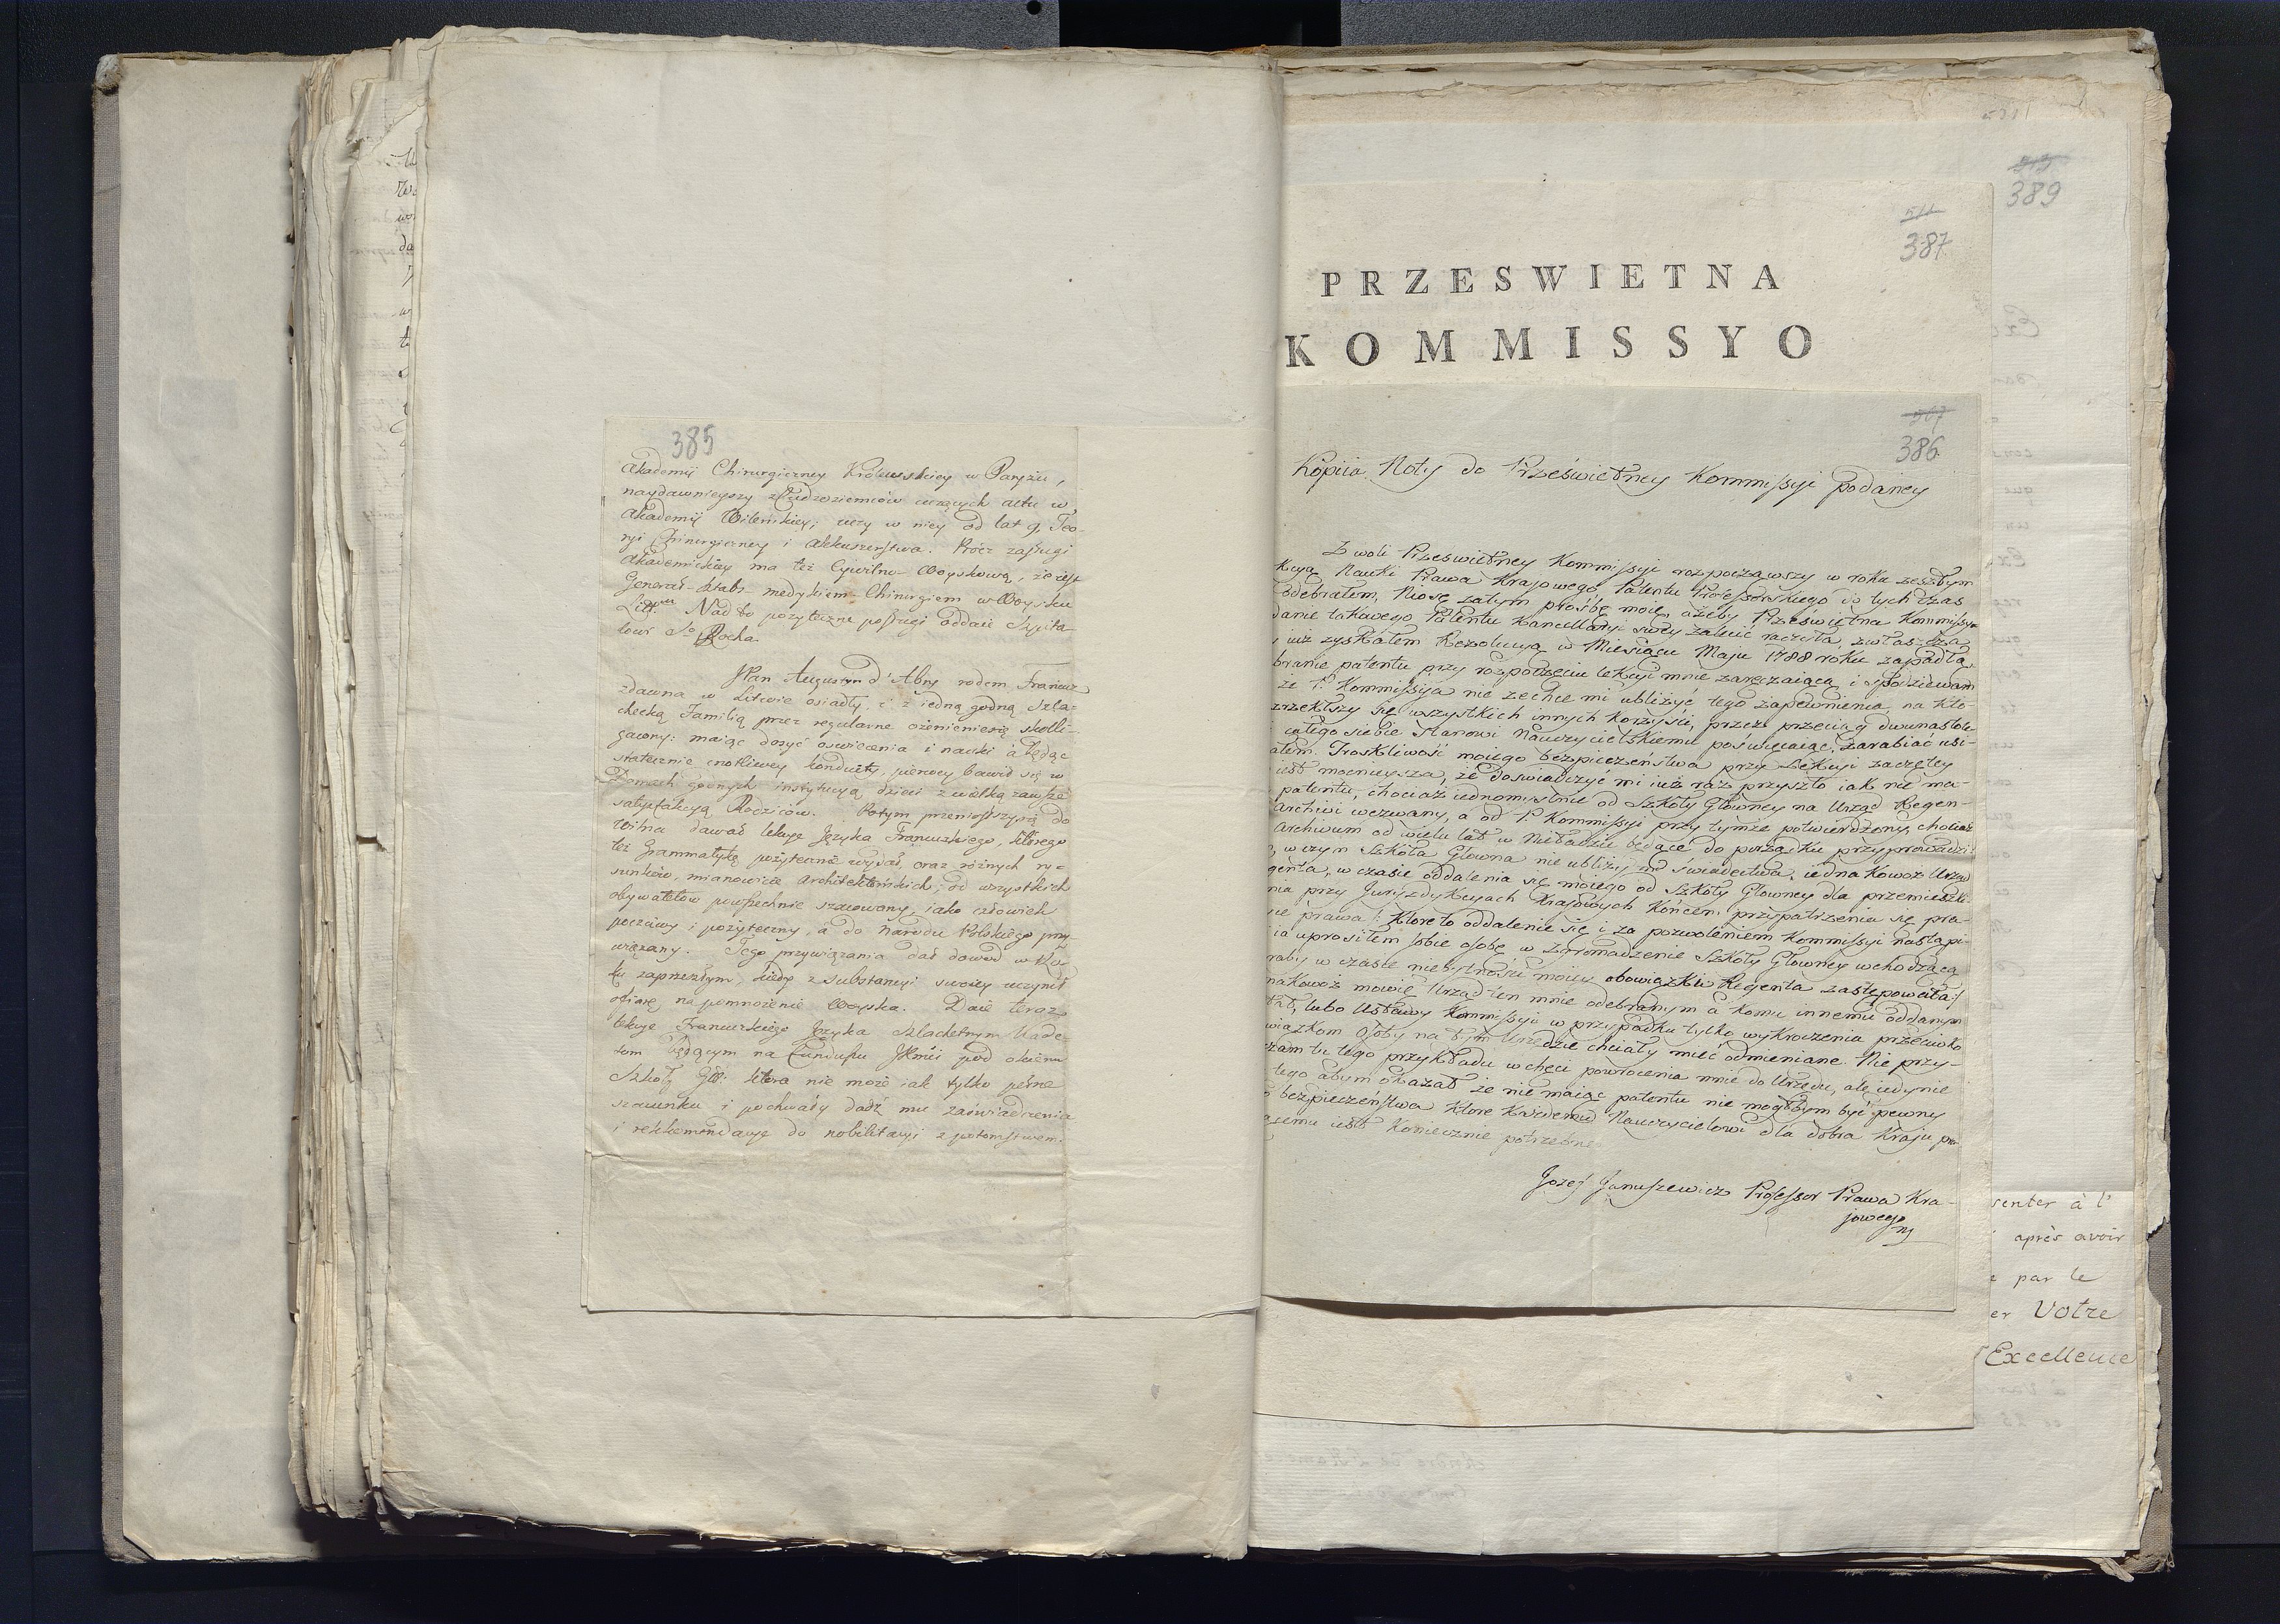 385
Akademij Chirurgiczney Królewskiey w Paryżu,
naydawnieyszy z Cudzoziemców uczących actu w
Akademij Wileńskiey; uczy w niey od lat 9, Teo-
ryi Chirurgiczney i Akkuszerstwa. Prócz zasługi
Akademickiey ma też Cywilno-Woyskową, że iest
Generał-Sztabs-medykiem-Chirurgiem w Woysku
Litt. Nadto pożyteczne posługi oddaie Szpita-
lowi So Rocha.
JPan Augustyn d'Abry rodem Francuz
zdawna w Litwie osiadły, i z iedną godną Szla-
checką Familią przez regularne ożenienie się skolli-
gacony: maiąc dosyć oświecenia i nauki a będąc
statecznie cnotliwey konduity, pierwey bawił się w
Domach godnych instytucyą dzieci z wielką zawsze
satysfakcyą Rodziców. Potym przeniosłszy się do
Wilna dawał lekcye Języka Francuzkiego, którego
też Grammatykę pożyteczną wydał, oraz różnych ry-
sunków, mianowicie Architektońskich; od wszystkich
obywatelów powszechnie szacowany, iako człowiek
poczciwy i pożyteczny, a do Narodu Polskiego przy
wiązany. Tego przywiązania dał dowód w Ro-
ku zaprzeszłym, kiedy z substancyi swoiey uczynił
ofiarę, na pomnożenie Woyska. Daie teraz
lekcye Francuzkiego Języka Szlachetnym Kade-
tom będącym na Funduszu JKmci pod okiem
Szkoły Głł: która nie może iak tylko pełne
szacunku i pochwały dadź mu zaświadczenia
i rekkomendacye do nobilitacyi z potomstwem.
389
511
387
PRZESWIETNA
KOMMISSYO
507
386
Kopiia Noty do Prześwietney Kommissyi podaney
Z woli Przeswietney Kommissyi rozpocząwszy w roku zeszłym
kcyą Nauki Prawa Krajowego, Patentu Professorskiego do tych czas
odebrałem, Niosę zatym prośbę moię, ażeby Prześwietna Kommissya
danie takowego Patentu Kancellaryi swey zalecić raczyła, zwłaszcza
iuż zyskałem Rezolucyą w Miesiącu Maju 1788 roku zapadłą,
branie patentu przy rozpoczęciu lekcyi mnie zaręczaiącą i spodziewam
że P. Kommissyia nie zechce mi ubliżyć tego zapewnienia, na kto-
zrzekłszy się wszystkich innych korzyści, przez przeciąg dwunastole
całego siebie stanowi Nauczycielskiemu poświęcaiąc, zarabiać usi-
ałem. Troskliwość moiego bezpieczenstwa przy Lekcyi zaczętey
iest mocnieysza, że doswiadczyć mi iuż raz przyszło iak nie ma-
patentu, chociaż iednomyslnie od Szkoły Głowney na Urząd Regen-
Archivi wezwany, a od P. Kommissyi przy tymże potwierdzony, chociaż
Archivum od wielu lat w Nieładzie będące do porządku przyprowadzi-
w czym Szkoła Głowna nie ubliży mi świadectwa, iednakowoż Urząd
genta, w czasie oddalenia się moiego od Szkoły Głowney dla przemieszk-
nia przy Juryzdykcyach Krajowych końcem przypatrzenia się pra-
ce prawa: Ktoreto oddalenie się i za pozwoleniem Kommissyi nastąpi-
ia uprosiłem sobie osobę w Zgromadzenie Szkoły Głowney wchodzącą
raby w czasie niebytności moiey obowiązki Regenta zastępowała:/
nakowoż mowię Urząd ten mnie odebranym a komu innemu oddanym
stał, lubo Ustawy Kommissyi w przypadku tylko wykroczenia przeciwko
wiązkom Osoby na tym Urzędzie chciały mieć odmieniane. Nie przy-
czam tu tego przykładu w chęci powrocenia mnie do Urzędu, ale iedynie
tego abym okazał że nie maiąc patentu nie mogłbym być pewny
bezpieczeństwa ktore każdemu Nauczycielowi dla dobra Kraju pra-
cemu iest koniecznie potrzebne
Jozef Januszewicz Professor Prawa Kra-
jowego
senter à l'
après avoir
par le
er Votre
Excellence